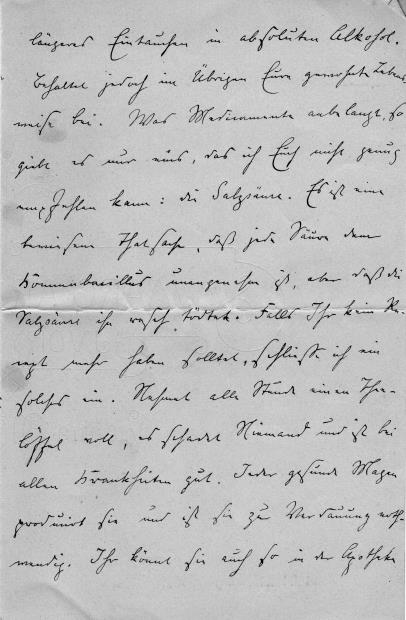 längeres Eintauchen in absoluten Alkohol.
Behaltet jedoch im Übrigen Eure gewohnte Lebens-
weise bei. Was Medicamente anbelangt, so
giebt es nur eins, das ich Euch nicht genug
empfehlen kann: die Salzsäure. Es ist eine
bewiesene Thatsache, daß jede Säure dem
Kommabacillus unangenehm ist, aber daß die
Salzsäure ihn rasch tödtet. Falls Ihr kein Re-
cept mehr haben solltet, schließe ich ein
solches ein. Nehmet alle Stunde einen Thee-
löffel voll, es schadet Niemand und ist bei
allen Krankheiten gut. Jeder gesunde Magen
produzirt sie und ist sie zur Verdauung noth-
wendig. Ihr könnt sie auch so in der Apotheke